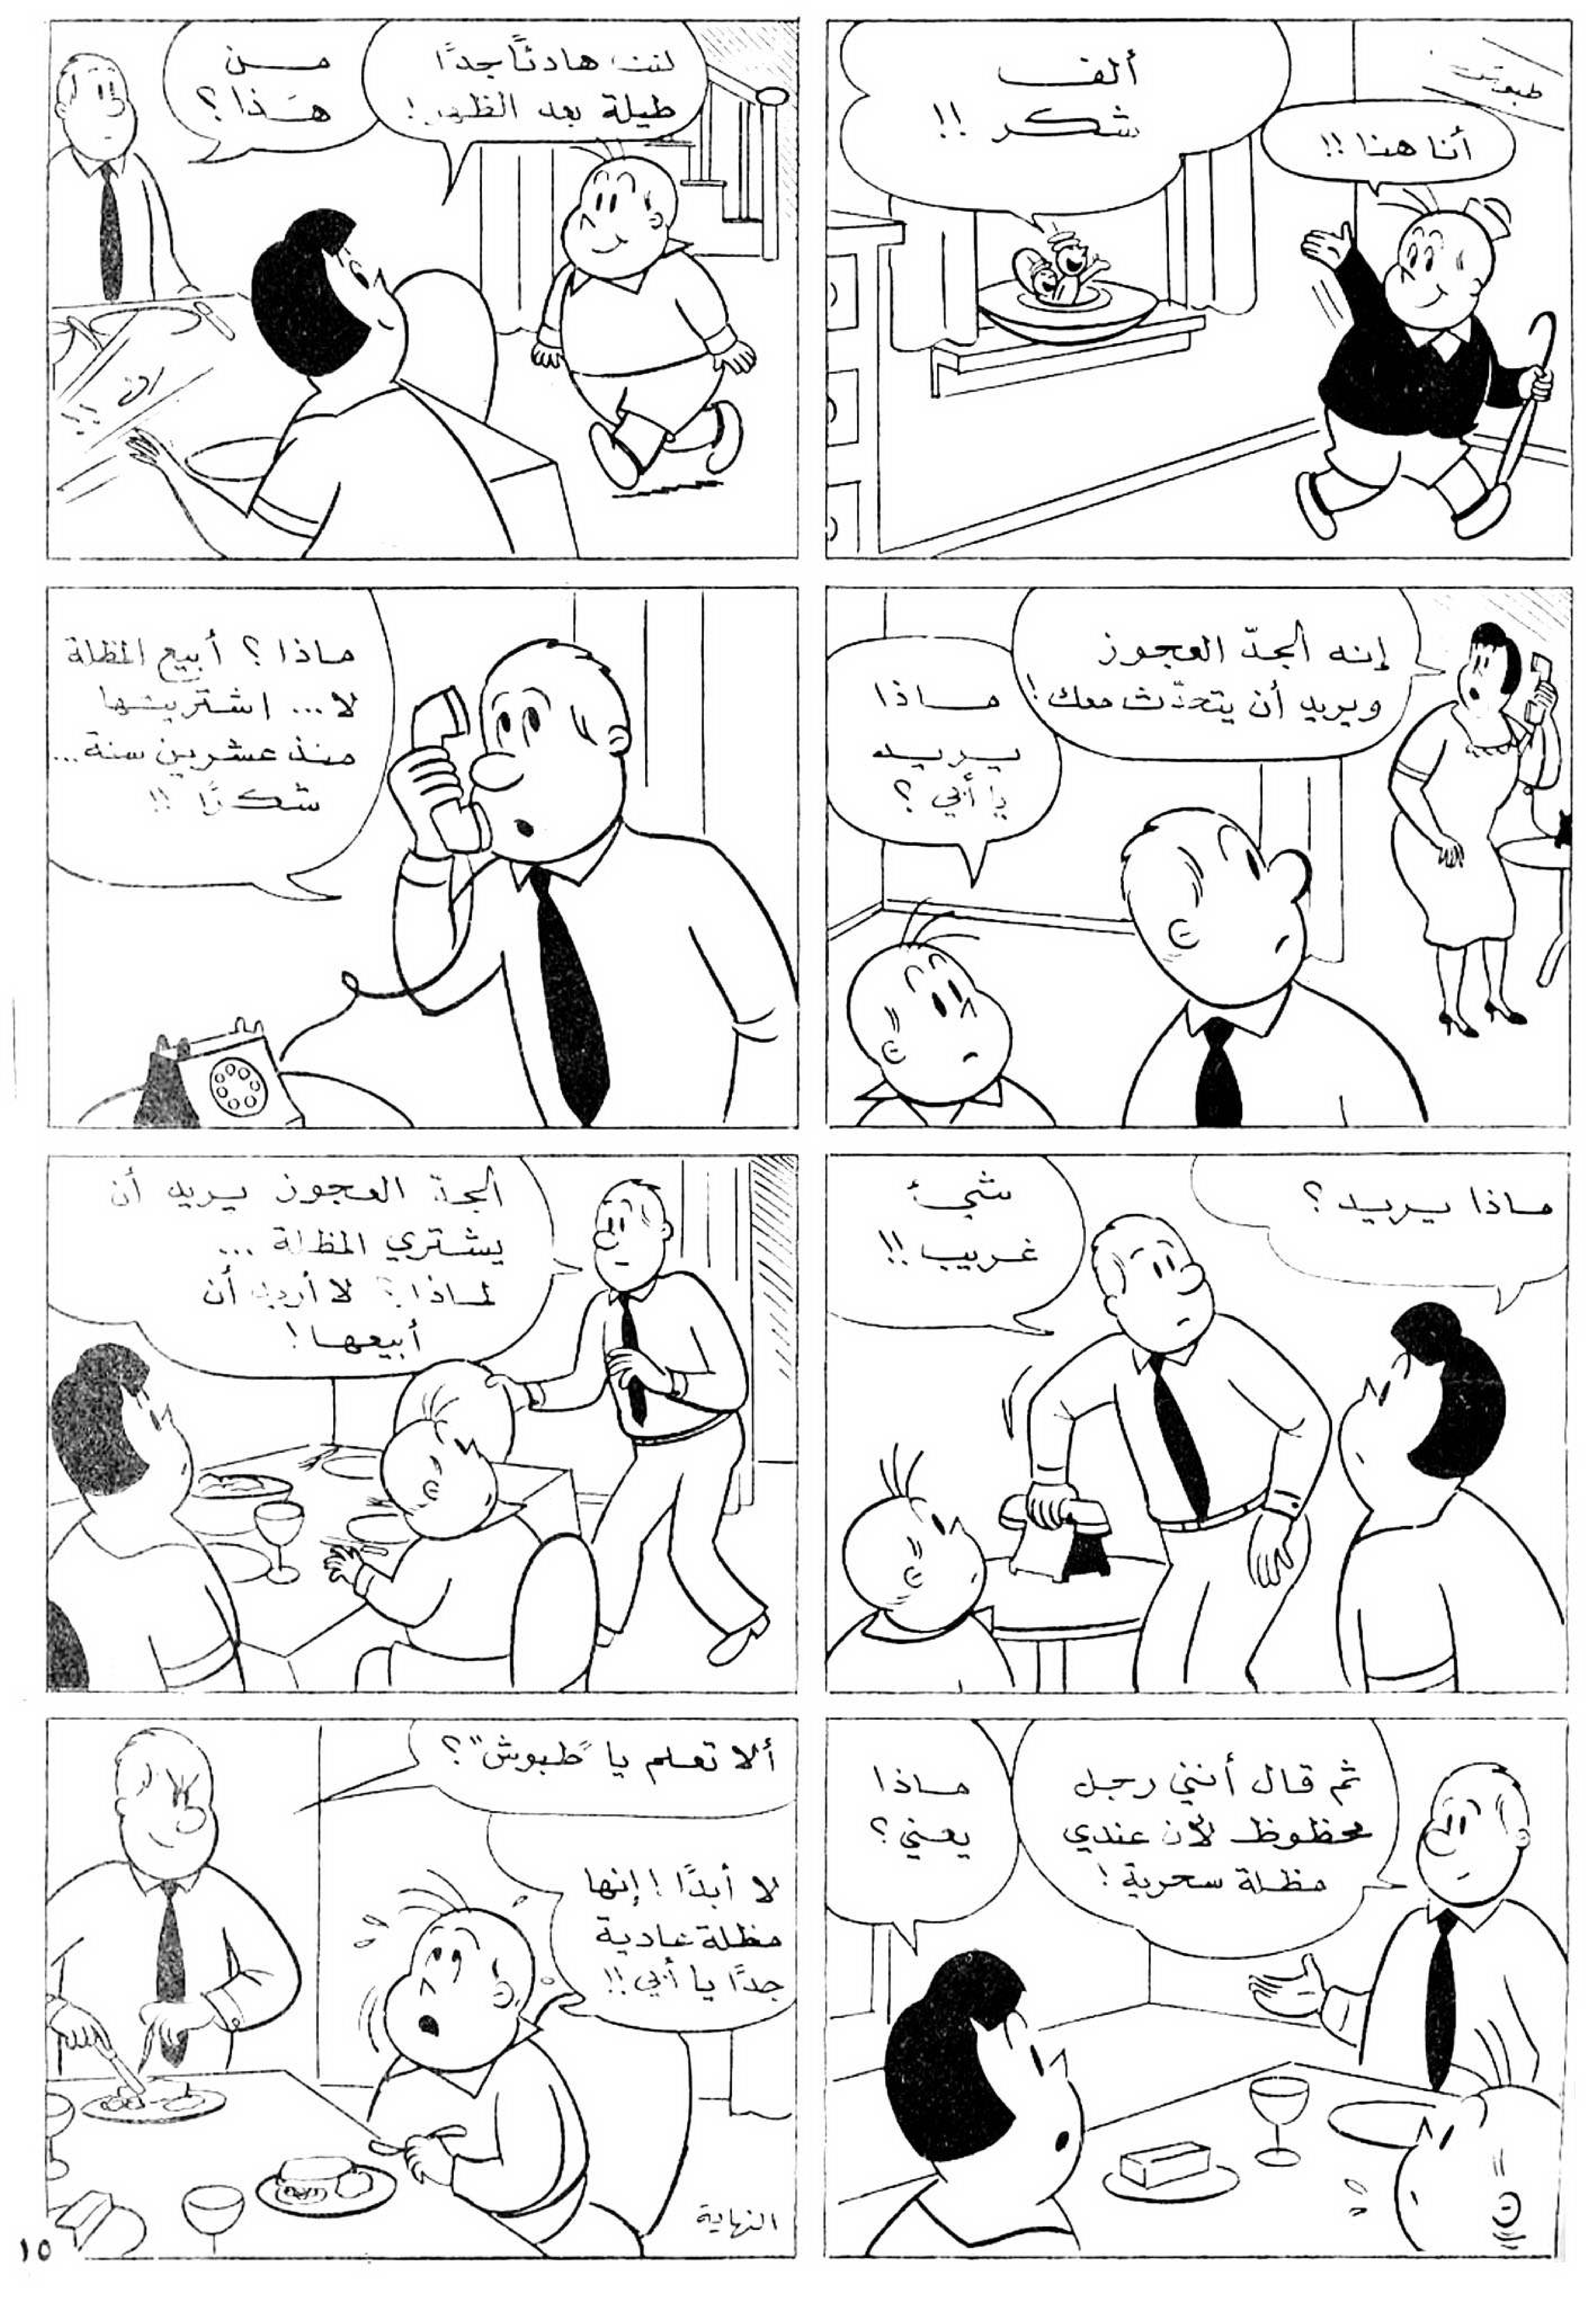 طبوش
ألف
شكر !!
أنا هنا !!
كنت هادئًا جدًا
طيلة بعد الظهر !
من
هذا ؟
إنه الجدّ العجوز
ويريد أن يتحدّث معك !
ماذا
يريد
يا أبي ؟
ماذا ؟ أبيع المظلة
لا... اشتريتها
منذ عشرين سنة...
شكرًا !!
ماذا يريد ؟
شيئ
غريب !!
الجدّ العجوز يريد أن
يشتري المظلة ...
لماذا ؟ لا أريد أن
أبيعها !
ثم قال أنني رجل
محظوظ لأن عندي
مظلة سحرية !
ماذا
يعني ؟
ألا تعلم يا "طبوش" ؟
لا أبدًا ! إنها
مظلة عادية
جدًا يا أبي !!
النهاية
١٥